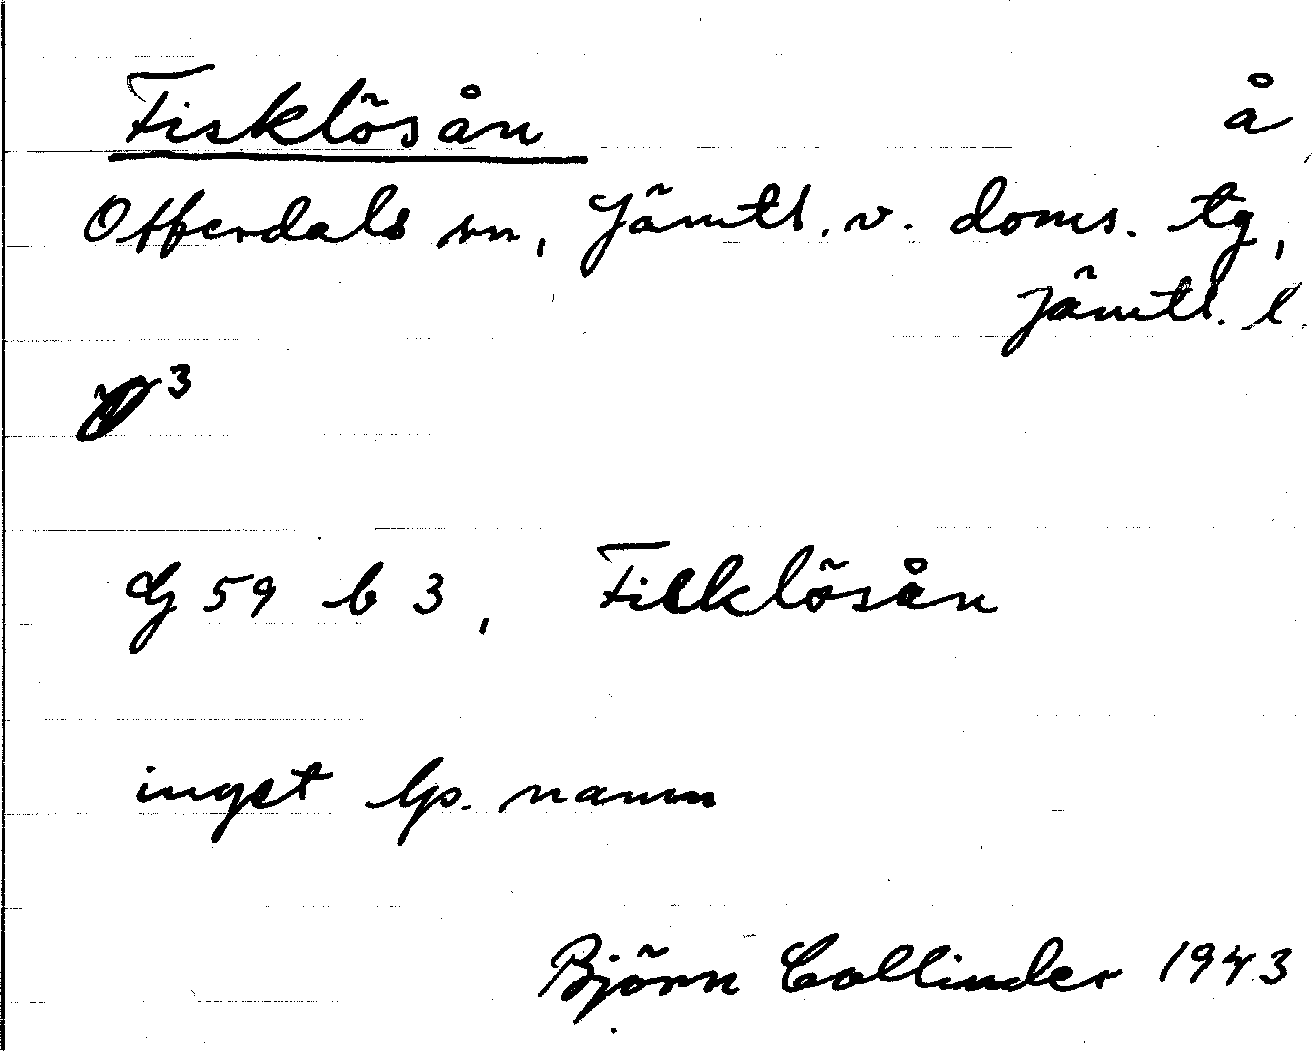 Fisklösån å
Offerdals sn, Jämtl. v. doms. tg,
Jämtl. l.
3
G 59 b 3, Fisklösån
inget lp. namn
Björn Collinder 1943